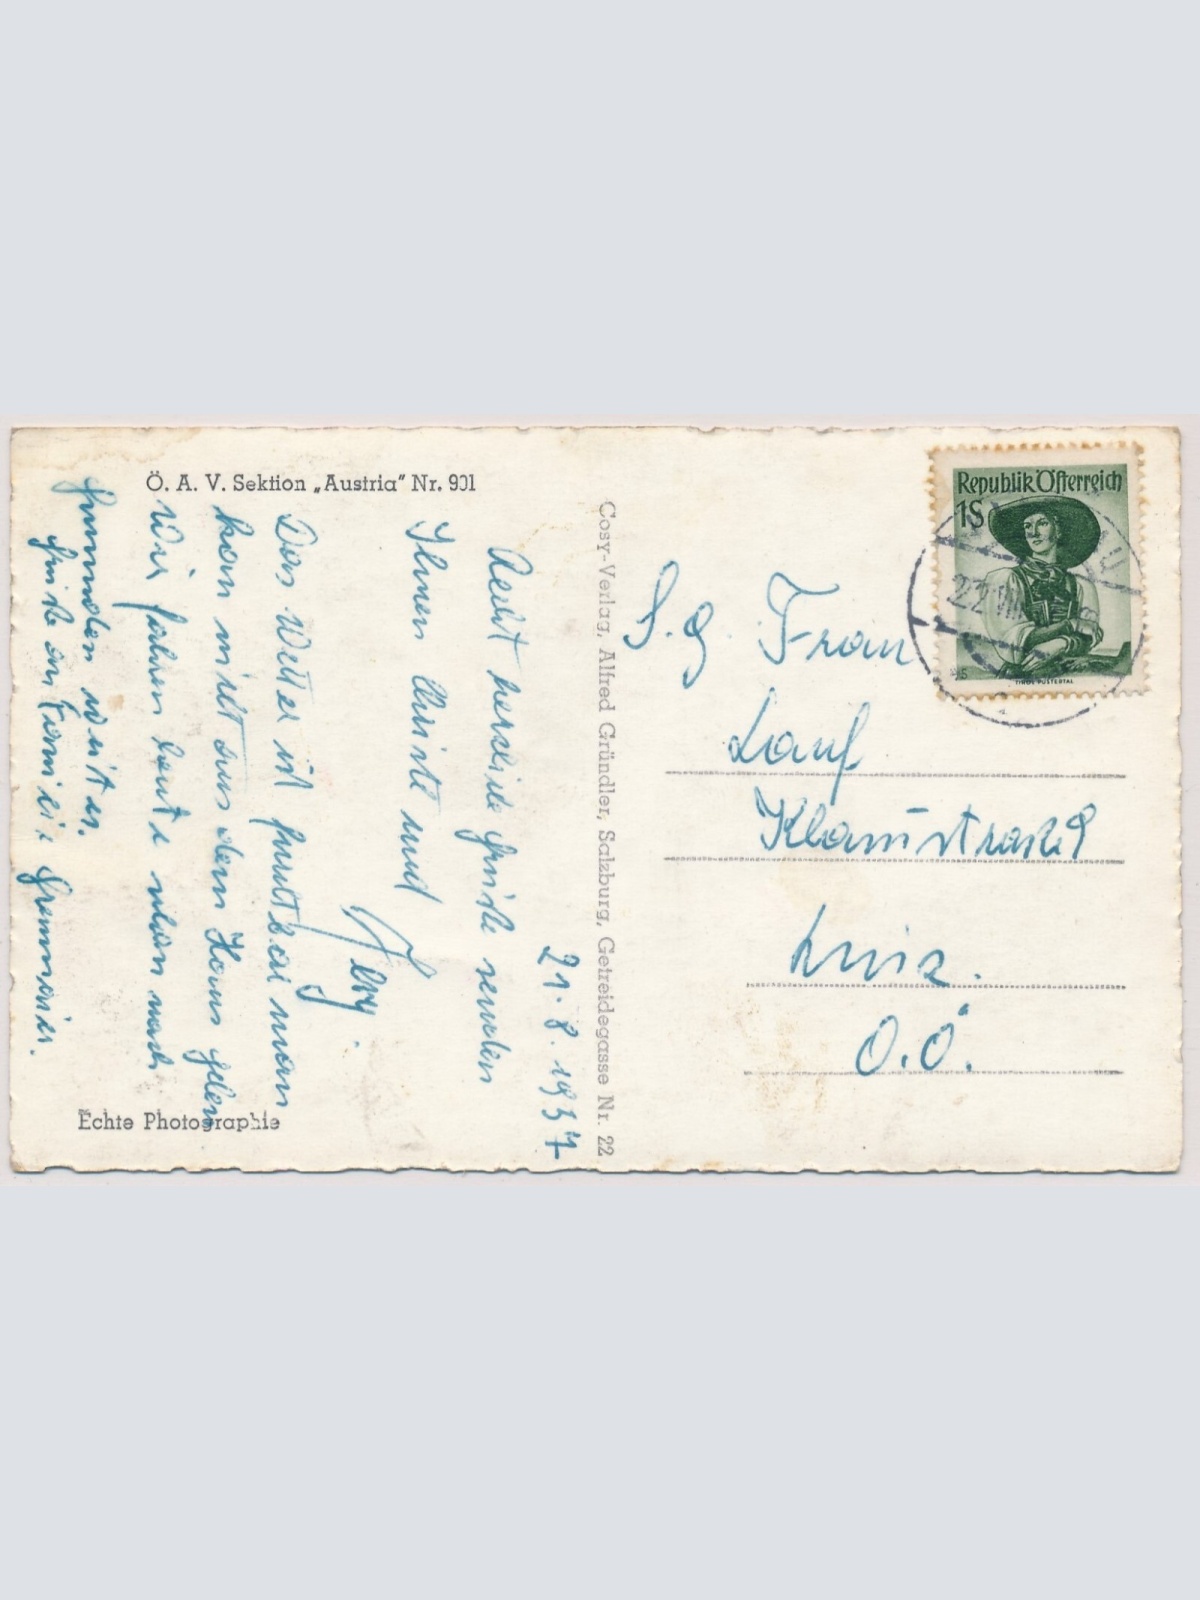 Ö. A. V. Sektion „Austria" Nr. 901
21.8.1957
Recht herzliche Grüße senden
Ihnen Christl und
Das Wetter ist furchtbar man
kann nicht aus dem Haus gehen
Wir fahren heute noch
Gmunden weiter.
Grüße an Familie
Echte Photographie
Cosy-Verlag, Alfred Gründler, Salzburg, Getreidegasse Nr. 22
Republik Österreich
1S
TIROL PUSTERTAL
22.VIII
S.g. Frau
Lauf
Linz.
O.Ö.